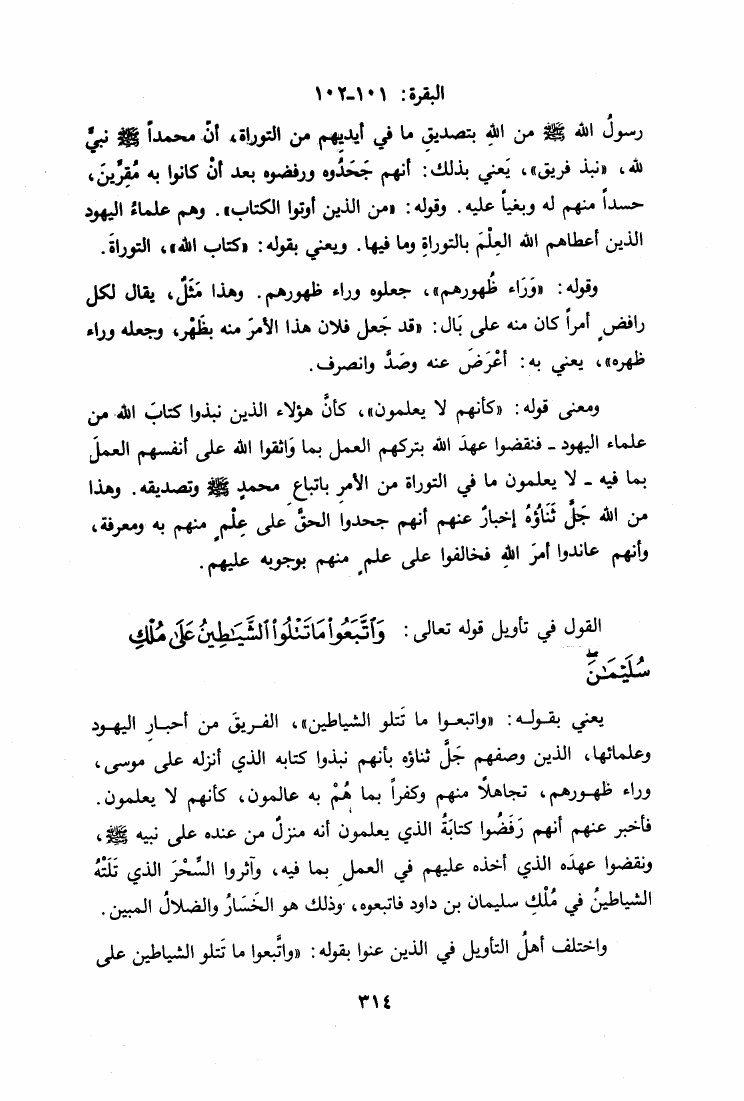 البقرة: ١٠١-١٠٢
رسولُ الله ﷺ من اللهِ بتصديقِ ما في أيديهم من التوراة، أنّ محمداً ﷺ نبيٌّ
لله، «نبذ فريق»، يَعني بذلك: أنهم جَحَدُوه ورفضوه بعد أنْ كانوا به مُقِرِّينَ،
حسداً منهم له وبغياً عليه. وقوله: «من الذين أوتوا الكتاب». وهم علماءُ اليهود
الذين أعطاهم الله العِلْمَ بالتوراةِ وما فيها. ويعني بقوله: «كتاب الله»، التوراةَ.
وقوله: «وَرَاء ظُهورهم»، جعلوه وراء ظهورهم. وهذا مَثَلٌ، يقال لكل
رافضٍ أمراً كان منه على بَال: «قد جَعل فلان هذا الأمرَ منه بظَهْر، وجعله وراء
ظهره»، يعني به: أعْرَضَ عنه وصَدَّ وانصرف.
ومعنى قوله: «كأنهم لا يعلمون»، كأنَّ هؤلاء الذين نبذوا كتابَ الله من
علماء اليهود - فنقضوا عهدَ الله بتركهم العمل بما وَاثقوا الله على أنفسهم العملَ
بما فيه - لا يعلمون ما في التوراة من الأمرِ باتباعِ محمدٍ ﷺ وتصديقه. وهذا
من الله جَلَّ ثَنَاؤهُ إخبارٌ عنهم أنهم جحدوا الحقَّ على عِلْمٍ منهم به ومعرفة،
وأنهم عاندوا أمرَ اللهِ فخالفوا على علمٍ منهم بوجوبه عليهم.
القول في تأويل قوله تعالى: وَٱتَّبَعُوا۟ مَا تَتْلُوا۟ ٱلشَّيَـٰطِينُ عَلَىٰ مُلْكِ
سُلَيْمَـٰنَ ۖ
يعني بقوله: «واتبعوا ما تَتلو الشياطين»، الفريقَ من أحبارِ اليهود
وعلمائها، الذين وصفهم جَلَّ ثناؤه بأنهم نبذوا كتابه الذي أنزله على موسى،
وراء ظهورهم، تجاهلاً منهم وكفراً بما هُمْ به عالمون، كأنهم لا يعلمون.
فأخبر عنهم أنهم رَفَضُوا كتابَهُ الذي يعلمون أنه منزلٌ من عنده على نبيه ﷺ،
ونقضوا عهدَه الذي أخذه عليهم في العملِ بما فيه، وآثروا السِّحْرَ الذي تَلَتْهُ
الشياطينُ في مُلْكِ سليمان بن داود فاتبعوه، وذلك هو الخَسَارُ والضلالُ المبين.
واختلف أهلُ التأويل في الذين عنوا بقوله: «واتَّبعوا ما تَتلو الشياطين على
٣١٤